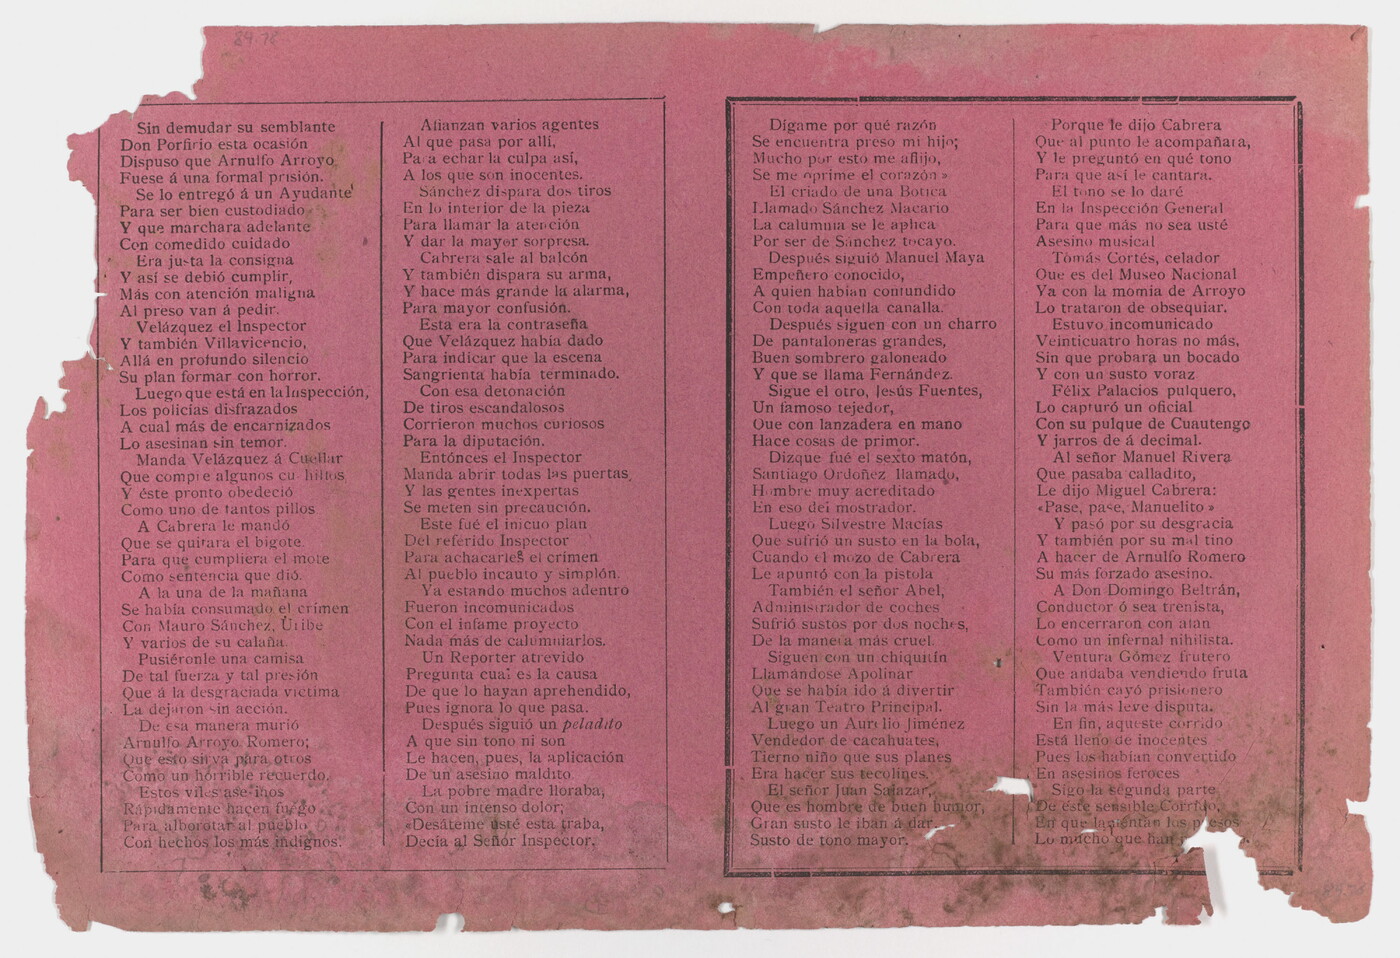 89-78
Sin demudar su semblante
Don Porfirio esta ocasión
Dispuso que Arnulfo Arroyo
Fuese á una formal prisión.
Se lo entregó á un Ayudante
Para ser bien custodiado
Y que marchara adelante
Con comedido cuidado
Era justa la consigna
Y así se debió cumplir,
Más con atención maligna
Al preso van á pedir.
Velázquez el Inspector
Y también Villavicencio,
Allá en profundo silencio
Su plan formar con horror.
Luego que está en la Inspección,
Los policías disfrazados
A cual más de encarnizados
Lo asesinan sin temor.
Manda Velázquez á Cuellar
Que compre algunos cuchillos
Y éste pronto obedeció
Como uno de tantos pillos
A Cabrera le mandó
Que se quitara el bigote.
Para que cumpliera el mote
Como sentencia que dió.
A la una de la mañana
Se había consumado el crimen
Con Mauro Sánchez, Uribe
Y varios de su calaña.
Pusiéronle una camisa
De tal fuerza y tal presión
Que á la desgraciada victima
La dejaron sin acción.
De esa manera murió
Arnulfo Arroyo Romero;
Que esto sirva para otros
Como un horrible recuerdo.
Estos viles asesinos
Rápidamente hacen fuego
Para alborotar al pueblo
Con hechos los más indignos.
Afianzan varios agentes
Al que pasa por allí,
Para echar la culpa así,
A los que son inocentes.
Sánchez dispara dos tiros
En lo interior de la pieza
Para llamar la atención
Y dar la mayor sorpresa.
Cabrera sale al balcón
Y también dispara su arma,
Y hace más grande la alarma,
Para mayor confusión.
Esta era la contraseña
Que Velázquez había dado
Para indicar que la escena
Sangrienta había terminado.
Con esa detonación
De tiros escandalosos
Corrieron muchos curiosos
Para la diputación.
Entónces el Inspector
Manda abrir todas las puertas,
Y las gentes inexpertas
Se meten sin precaución.
Este fué el inicuo plan
Del referido Inspector
Para achacarles el crimen
Al pueblo incauto y simplón.
Ya estando muchos adentro
Fueron incomunicados
Con el infame proyecto
Nada más de calumniarlos.
Un Reporter atrevido
Pregunta cual es la causa
De que lo hayan aprehendido,
Pues ignora lo que pasa.
Después siguió un peladito
A que sin tono ni son
Le hacen, pues, la aplicación
De un asesino maldito
La pobre madre lloraba,
Con un intenso dolor;
«Desáteme usté esta traba,
Decía al Señor Inspector.
Dígame por qué razón
Se encuentra preso mi hijo;
Mucho por esto me aflijo,
Se me oprime el corazón»
El criado de una Botica
Llamado Sánchez Macario
La calumnia se le aplica
Por ser de Sánchez tocayo.
Después siguió Manuel Maya
Empeñero conocido,
A quien habian confundido
Con toda aquella canalla.
Después siguen con un charro
De pantaloneras grandes,
Buen sombrero galoneado
Y que se llama Fernández.
Sigue el otro, Jesús Fuentes,
Un famoso tejedor,
Que con lanzadera en mano
Hace cosas de primor.
Dizque fué el sexto matón,
Santiago Ordoñez llamado,
Hombre muy acreditado
En eso del mostrador.
Luego Silvestre Macías
Que sufrió un susto en la bola,
Cuando el mozo de Cabrera
Le apuntó con la pistola
También el señor Abel,
Administrador de coches
Sufrió sustos por dos noches,
De la manera más cruel.
Siguen con un chiquitín
Llamándose Apolinar
Que se había ido á divertir
Al gran Teatro Principal.
Luego un Aurelio Jiménez
Vendedor de cacahuates,
Tierno niño que sus planes
Era hacer sus tecolines.
El señor Juan Salazar,
Que es hombre de buen humor,
Gran susto le iban á dar
Susto de tono mayor.
Porque le dijo Cabrera
Que al punto le acompañara,
Y le preguntó en qué tono
Para que así le cantara.
El tono se lo daré
En la Inspección General
Para que más no sea usté
Asesino musical
Tomás Cortés, celador
Que es del Museo Nacional
Ya con la momia de Arroyo
Lo trataron de obsequiar.
Estuvo incomunicado
Veinticuatro horas no más,
Sin que probara un bocado
Y con un susto voraz
Félix Palacios pulquero,
Lo capturó un oficial
Con su pulque de Cuautengo
Y jarros de á decimal.
Al señor Manuel Rivera
Que pasaba calladito,
Le dijo Miguel Cabrera:
«Pase, pase, Manuelito»
Y pasó por su desgracia
Y también por su mal tino
A hacer de Arnulfo Romero
Su más forzado asesino.
A Don Domingo Beltrán,
Conductor ó sea trenista,
Lo encerraron con afan
Como un infernal nihilista.
Ventura Gómez frutero
Que andaba vendiendo fruta
También cayó prisionero
Sin la más leve disputa.
En fin, aqueste corrido
Está lleno de inocentes
Pues los habían convertido
En asesinos feroces
Sigo la segunda parte
De éste sensible Corrido,
En que lamentan los presos
Lo mucho que han